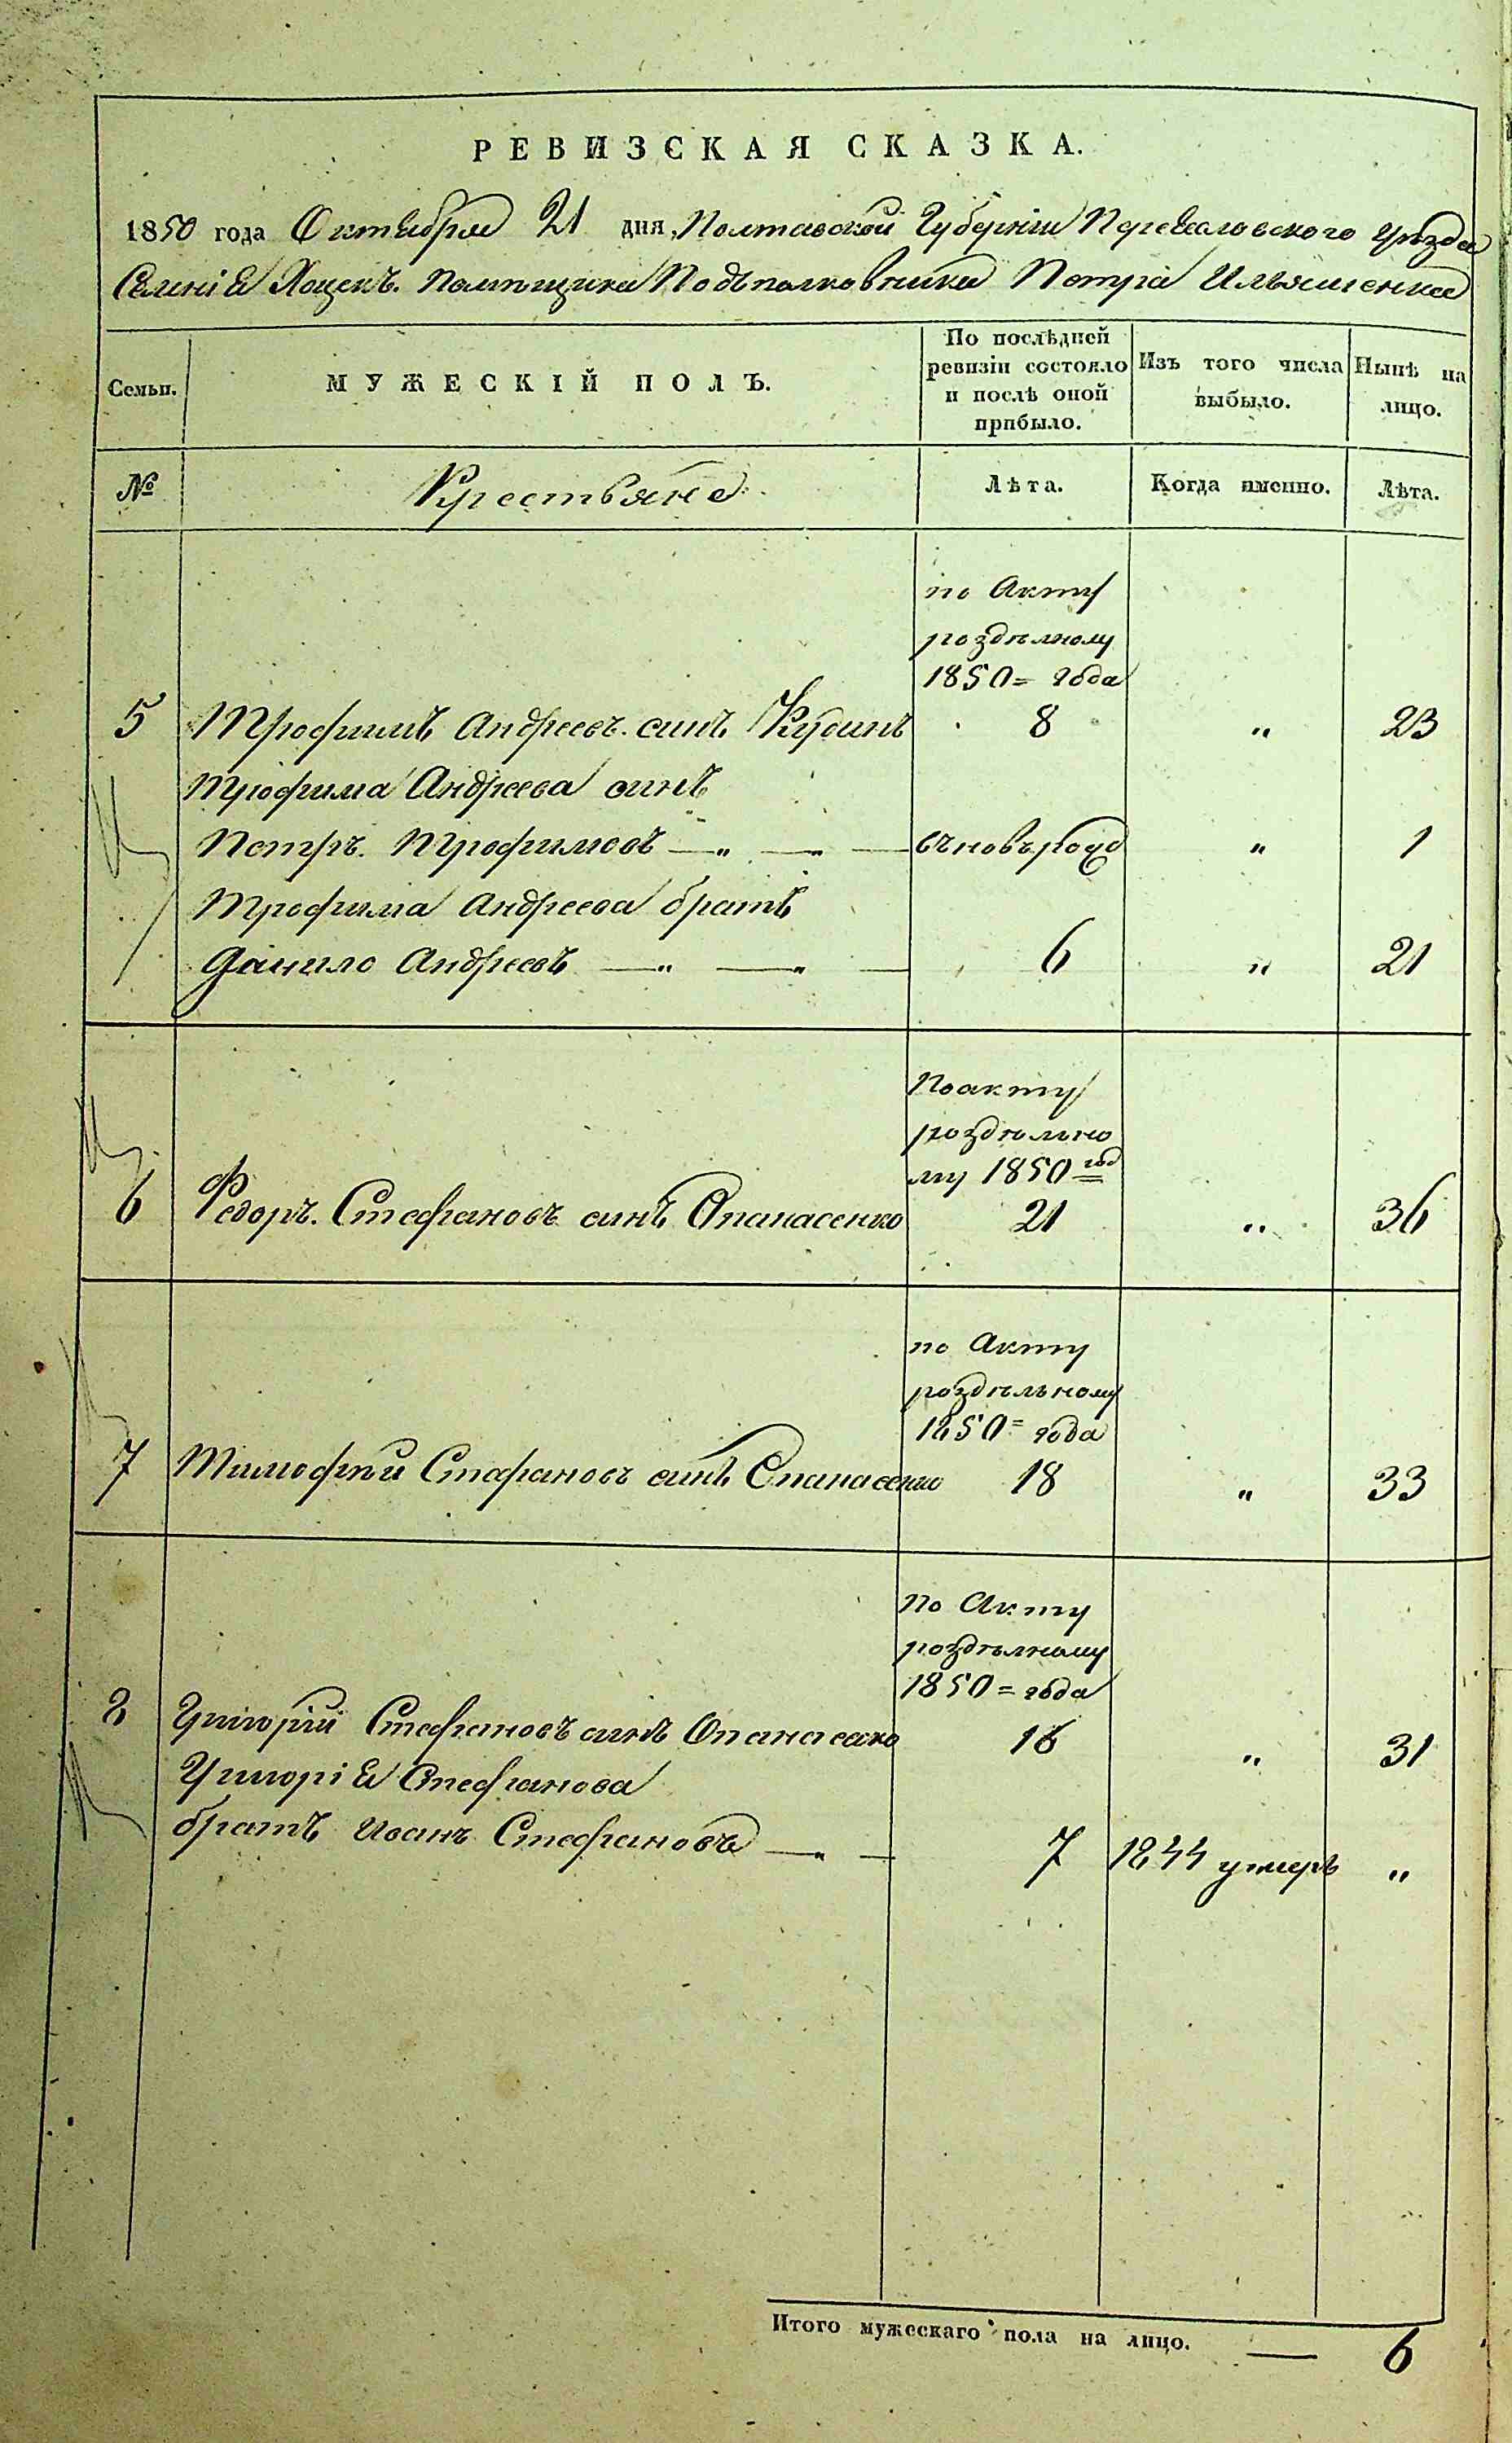 РЕВИЗСКАЯ СКАЗКА.
1850 года Октября 21 дня, Полтавской Губерніи Переяславского уѣзда
Селенія Хоцекъ. Помѣщика Подполковника Петра Ильяшенка
Семьи. МУЖЕСКІЙ ПОЛЪ. По послѣдней ревизіи состояло и послѣ оной прибыло. Изъ того числа выбыло. Нынѣ на лицо.
№ Крестьяне Лѣта. Когда именно. Лѣта.
по Акту
роздѣлному
1850= года
5 Трофимъ Андреевъ синъ Кубинъ 8 " 23
Трофима Андреева синъ
Петръ Трофимовъ — " — " — съновърожд " 1
Трофима Андреева братъ
Данило Андреевъ — " — " — 6 " 21
По акту
роздѣльно
му 1850 год
6 Федоръ Стефановъ синъ Опанасенко 21 " 36
по Акту
роздѣльному
1850= года
7 Тимофѣй Стефановъ синъ Опанасенко 18 " 33
По Акту
роздѣлному
1850= года
8 Григорій Стефановъ синъ Опанасенко 16 " 31
Григорія Стефанова
братъ Иванъ Стефановъ — " — 7 1844 умеръ "
Итого мужескаго пола на лицо. — 6